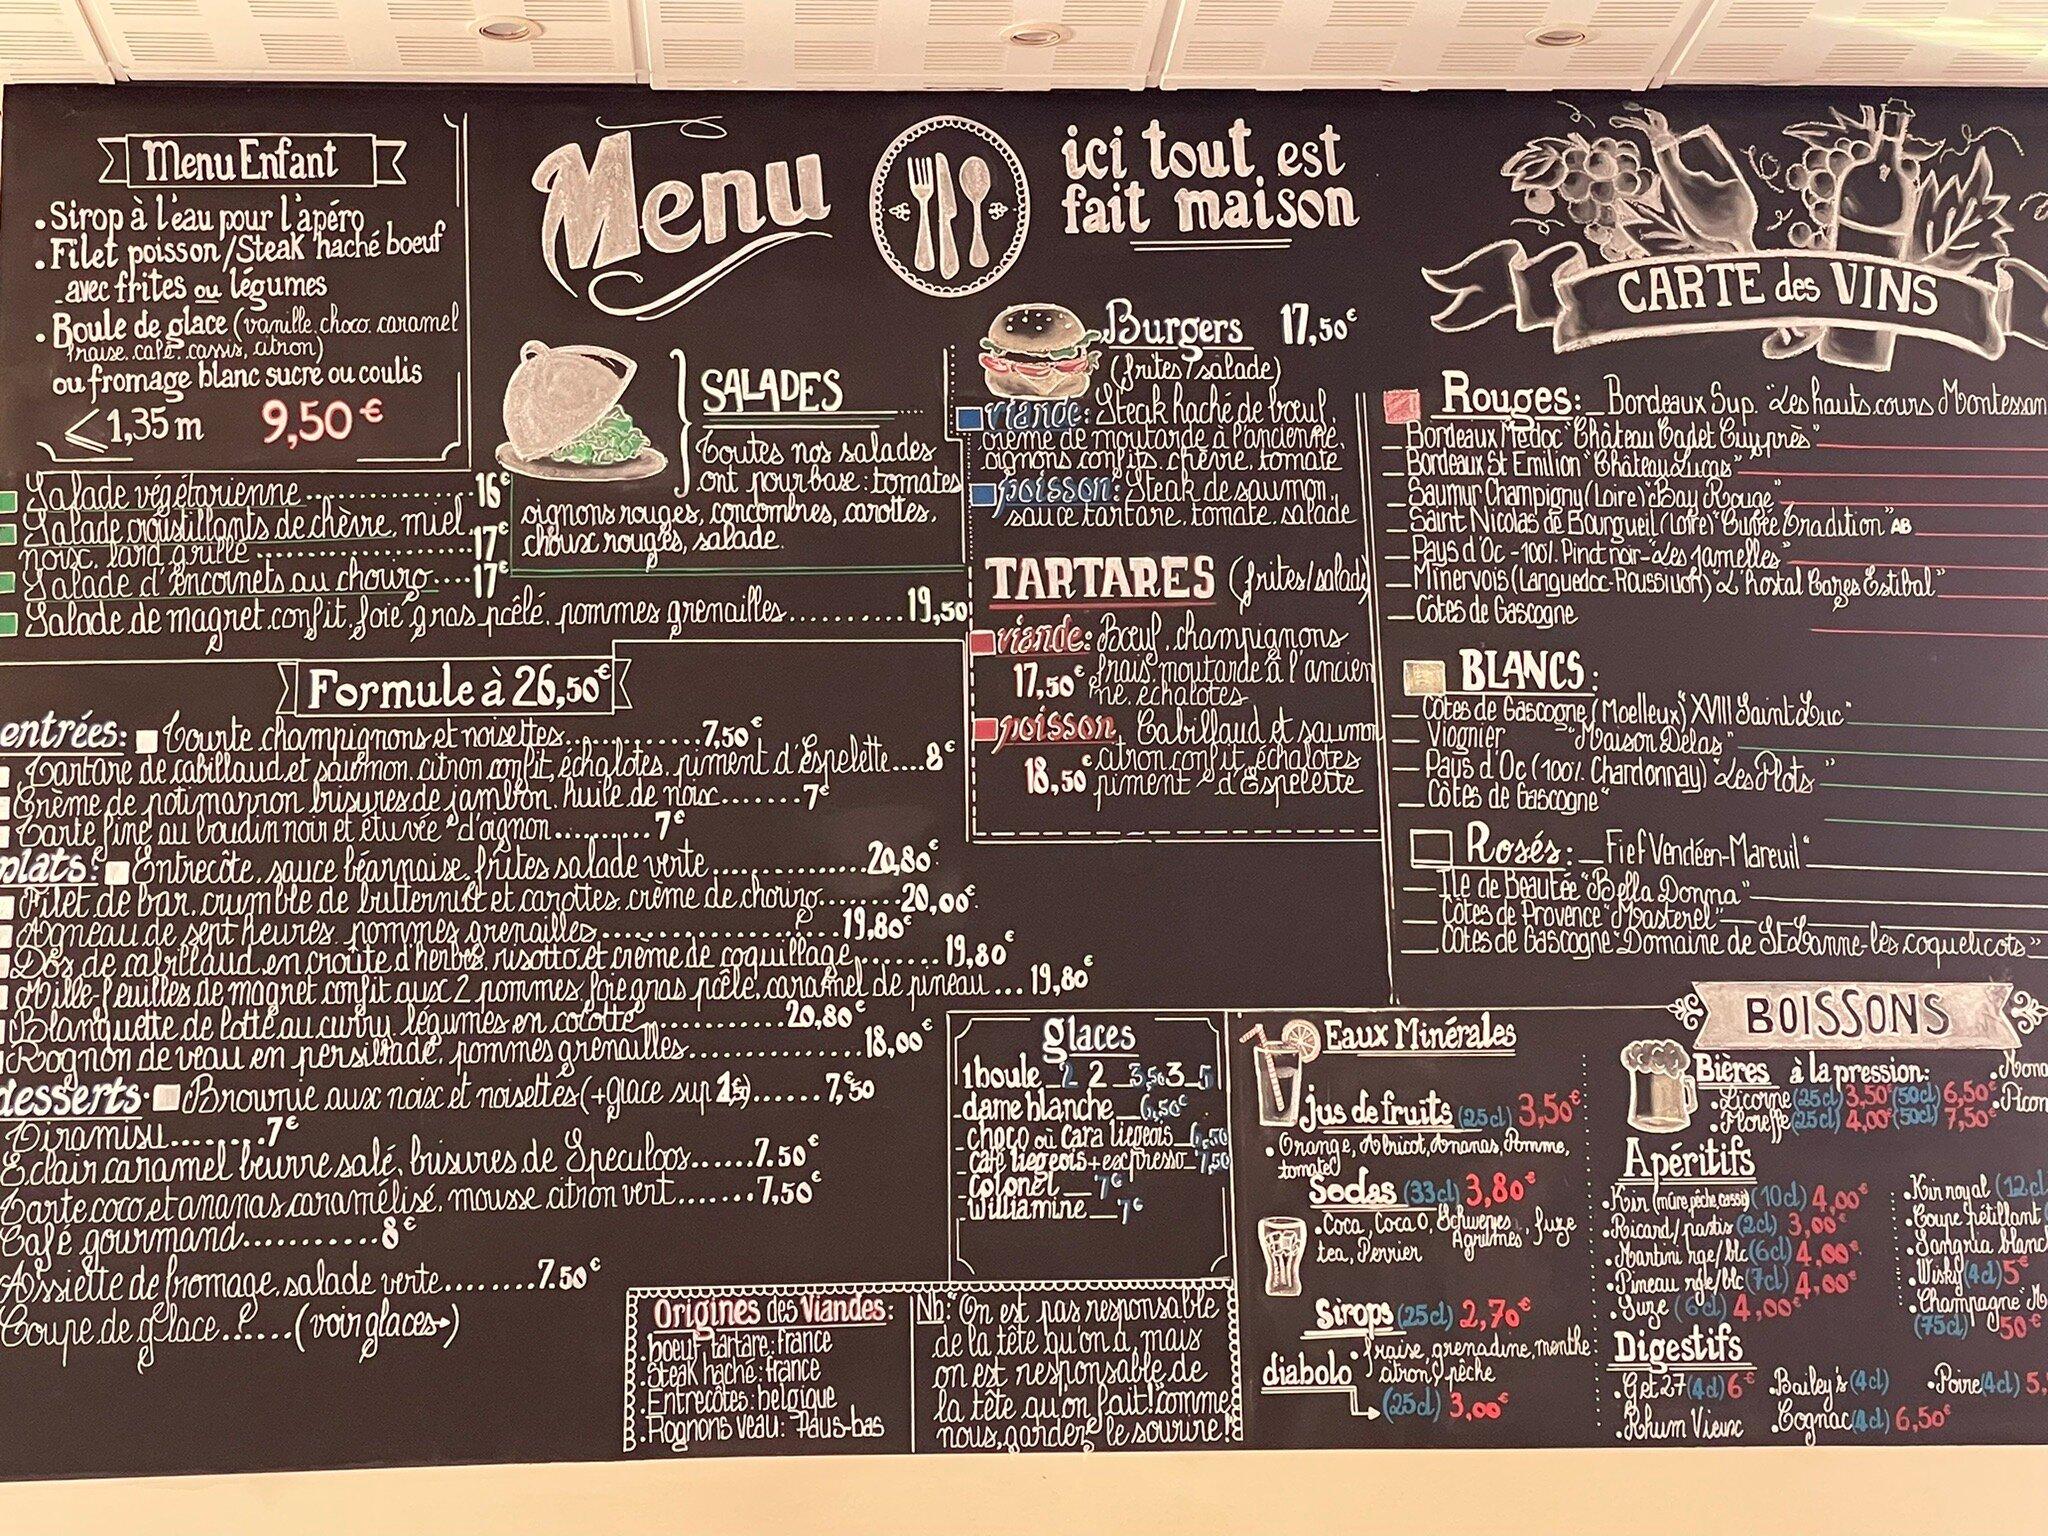 Menu Enfant
• Sirop à l'eau pour l'apéro
• Filet poisson/Steak haché boeuf
_avec frites ou légumes
• Boule de glace (vanille. choco. caramel
fraise. café. cassis, citron)
ou fromage blanc sucre ou coulis
< 1,35 m 9,50€
Menu
ici tout est
fait maison
SALADES
Toutes nos salades
ont pour base: tomates
oignons rouges, concombres, carottes,
choux rouges, salade.
Salade végétarienne 16€
Salade croustillants de chèvre, miel
noix, lard grillé 17€
Salade d'encornets au chorizo 17€
Salade de magret confit, foie gras poêlé, pommes grenailles 19,50
Burgers 17,50€
(frites/salade)
viande: Steak haché de bœuf,
crème de moutarde à l'ancienne,
oignons confits, chèvre, tomate
poisson: Steak de saumon,
sauce tartare, tomate, salade
TARTARES (frites/salade
viande: Bœuf, champignons
17,50€ frais, moutarde à l'ancien
ne, échalotes
poisson Cabillaud et saumon
citron confit, échalotes
18,50€ piment d'Espelette
Formule à 26,50€
entrées: Tourte champignons et noisettes 7,50€
Tartare de cabillaud et saumon, citron confit, échalotes, piment d'Espelette 8€
Crème de potimarron brisures de jambon, huile de noix 7€
Tarte fine au boudin noir et étuvée d'oignon 7€
plats: Entrecôte, sauce béarnaise, frites salade verte 20,80€
Filet de bar, crumble de butternut et carottes, crème de chorizo 20,00€
Agneau de sept heures, pommes grenailles 19,80€
Dos de cabillaud en croûte d'herbes, risotto et crème de coquillage 19,80€
Mille-feuilles de magret confit aux 2 pommes, foie gras poêlé, caramel de pineau 19,80€
Blanquette de lotte au curry, légumes en cocotte 20,80€
Rognon de veau en persillade, pommes grenailles 18,00€
desserts: Brownie aux noix et noisettes (+glace sup 7,50
Tiramisu 7€
Eclair caramel beurre salé, brisures de Speculoos 7.50€
Tarte coco et ananas caramélisé, mousse citron vert 7,50€
Café gourmand 8€
Assiette de fromage, salade verte 7.50€
Coupe de glace (voir glaces→)
glaces
1 boule _ 2 2 _ 3,50 3 _ 5
_dame blanche _ 6,50€
_choco où cara liegeois_6,50
_café liegeois+expresso_7,50
_colonel _ 7€
_williamine _ 7€
Origines des Viandes:
. boeuf tartare: france
. Steak haché: france
. Entrecôtes: belgique
. Rognons veau: Pays-bas
Nb: "On est pas responsable
de la tête qu'on a, mais
on est responsable de
la tête qu'on fait!" comme
nous, gardez le sourire!
CARTE des VINS
Rouges: _ Bordeaux Sup. "Les hauts cours Montessan
_ Bordeaux Médoc "Château Cadet Cuyprès"
_ Bordeaux St Emilion "Château Lucas"
_ Saumur Champigny (Loire) "Bay Rouge"
_ Saint Nicolas de Bourgueil (Loire) "Cuvée Tradition" AB
_ Pays d'Oc - 100% Pinot noir "Les Jamelles"
_ Minervois (Languedoc-Roussillon) "L'Hostal Cazes Estibal"
_ Côtes de Gascogne
BLANCS:
_ Côtes de Gascogne (Moelleux) "XVIII Saint Luc"
_ Viognier "Maison Delas"
_ Pays d'Oc (100% Chardonnay) "Les Plots"
_ Côtes de Gascogne"
Rosés: _ Fief Vendéen-Mareuil"
_ Ile de Beautée "Bella Donna"
_ Côtes de Provence "Masterel"
_ Côtes de Gascogne "Domaine de St Lanne-les coquelicots"
BOISSONS
Eaux Minérales
jus de fruits (25cl) 3,50€
• Orange, Abricot, Ananas, Pomme,
tomate
Sodas (33cl) 3,80€
• Coca, Coca 0, Schweppes Agrumes, fuze
tea, Perrier
Sirops (25cl) 2,70€
• fraise, grenadine, menthe
citron, pêche
diabolo
(25cl) 3,00€
Bières à la pression:
• Licorne (25cl) 3,50€ (50cl) 6,50€
• Floreffe (25cl) 4,00€ (50cl) 7,50€
• Picon
Apéritifs
• Kir (mûre, pêche, cassis) (10cl) 4,00€
• Ricard/pastis (2cl) 3,00€
• Martini rge/blc (6cl) 4,00€
• Pineau rge/blc (7cl) 4,00€
• Suze (6cl) 4,00€
• Kir royal (12cl
• Coupe pétillant
• Sangria blanc
• Wisky (4cl) 5€
• Champagne
(75cl) 50€
Digestifs
• Get 27 (4cl) 6€
• Rhum Vieux
• Bailey's (4cl)
• Cognac (4cl) 6,50€
• Poire (4cl) 5,